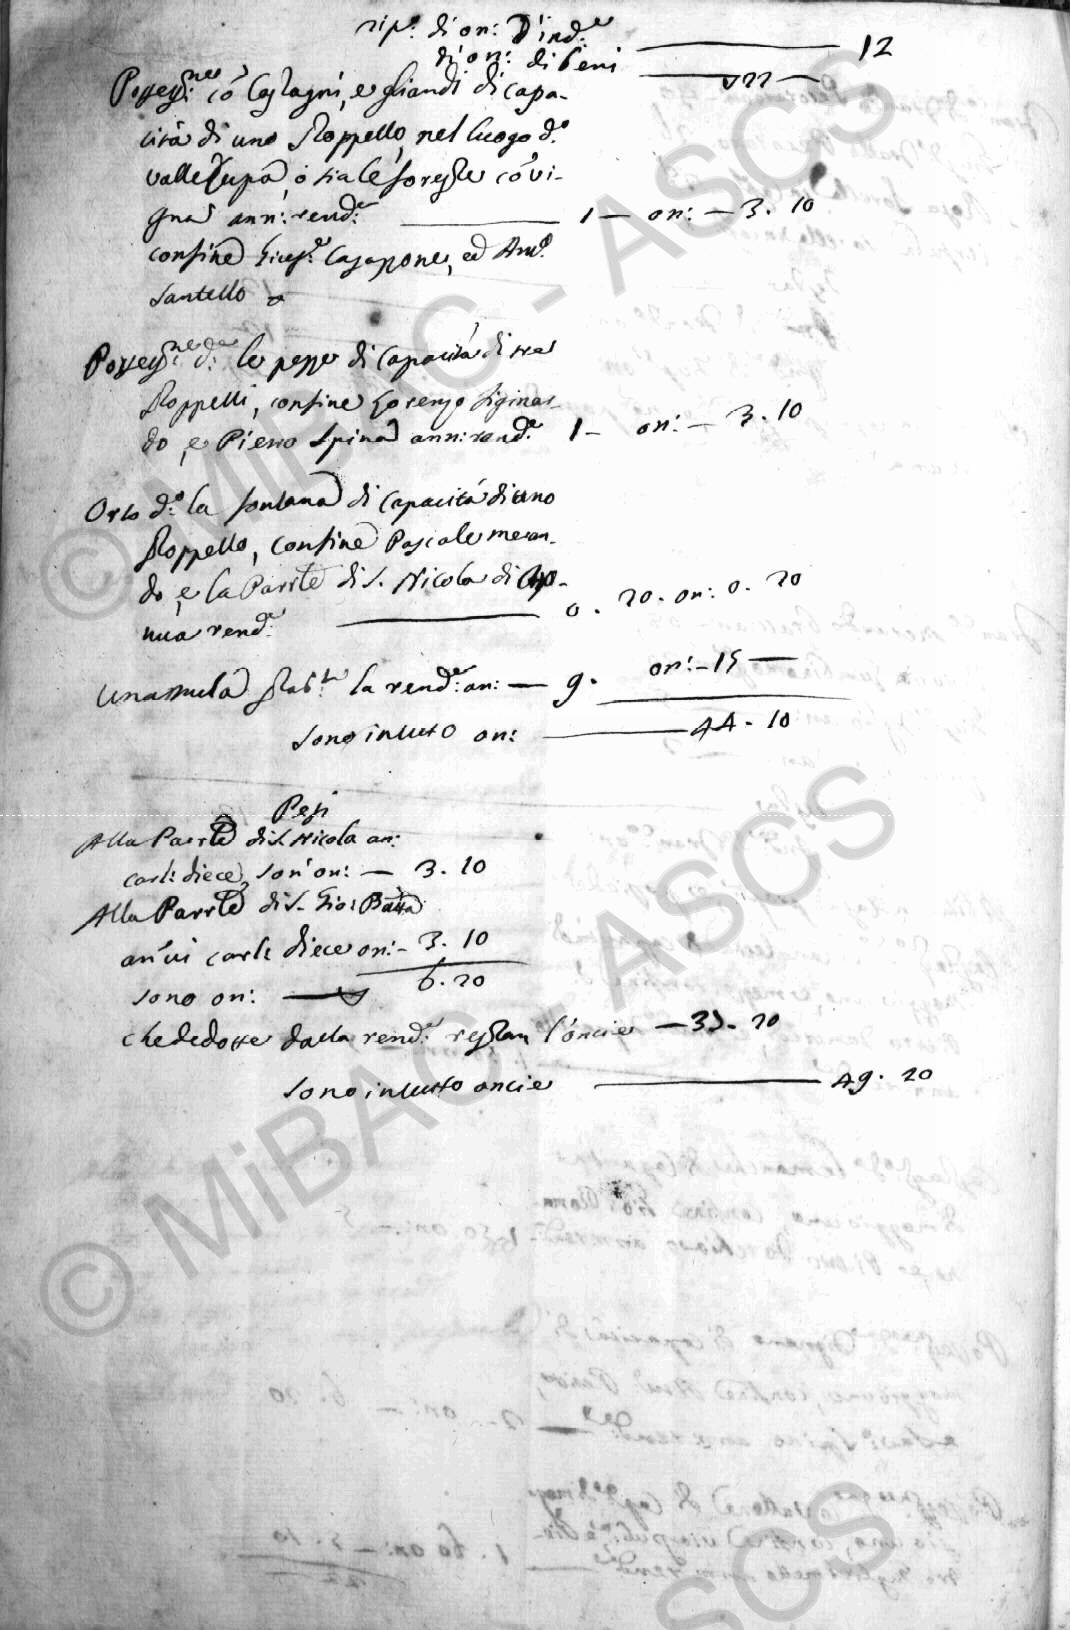 rip.e di on: D'ind.e ——— 12
di on: di beni ——— 22 — 0
Posseg.ne có Castagni, e ghiandi di capa-
cità di uno stoppello, nel luogo d.o
valle Cupa, o sia le foreste có vi-
gna ann: rend.e ——— 1 — on: — 3. 10
confine Gius.e Casappone, ed Ant.o
Santello
Posseg.ne d.a le pezze di capacità di tre
stoppelli, confine Lorenzo Siginar-
do, e Pietro Spina ann: rend.e 1 — on: — 3. 10
Orto d.o la fontana di capacità di uno
stoppello, confine Pascale meran-
do, e la Parr.le di S. Nicola di
nua rend.e ——— 0. 20. on: 0. 20
Una mula stab.le la rend.e an: — 9. on: — 15 —
Sono in tutto on: ——— 44. 10
Pesi
Alla Parr.le di S. Nicola an:
carl: diece, son' on: — 3. 10
Alla Parr.le di S. Gio: Batta
an'ui carl: diece on: — 3. 10
Sono on: ——— 6. 20
che dedotte dalla rend.e restan l'oncie — 37. 20
Sono in tutto oncie ——— 49. 20
© MiBAC - ASCS
© MiBAC - ASCS
SCS